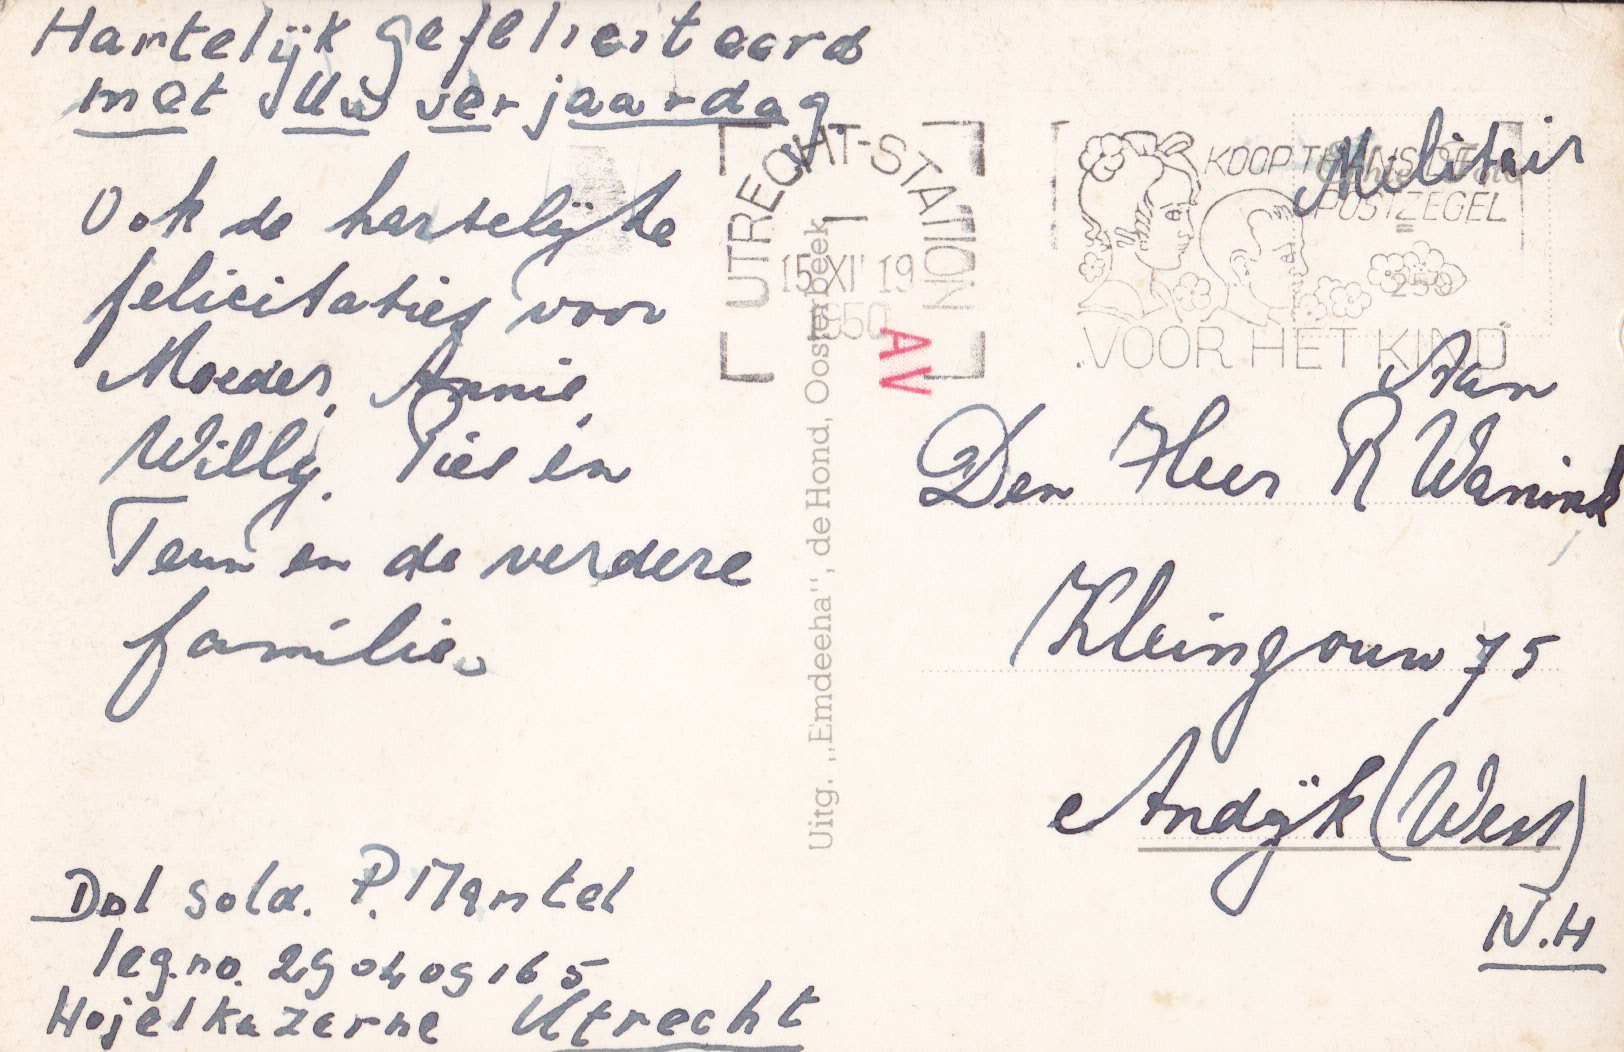 Hartelijk gefeliciteerd
met Uw verjaardag.
Ook de hartelijke
felicitaties voor
Moeder, Annie,
Willy, Pies en
Teun en de verdere
familie.
Dpl sold. P. Mantel
leg.no. 290409165
Hojelkazerne Utrecht
Uitg. „Emdeeha", de Hond, Oosterbeek
UTRECHT-STATION
15 XI 19
1950
AV
KOOP THANS DE
POSTZEGEL
VOOR HET KIND
Echte Foto
259
Militair
Aan
Den Heer R Wanink
Kleingouw 75
Andijk (West)
N.H